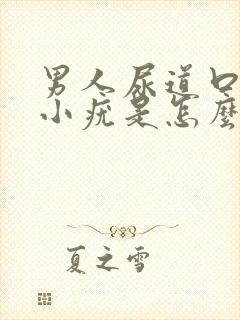 男人尿道口
小疙是怎麼
夏之雪